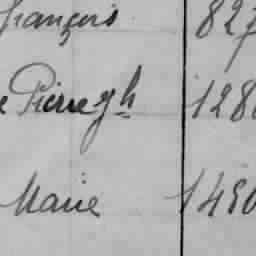 françois 827
Pierre gh 128
Marie 1450